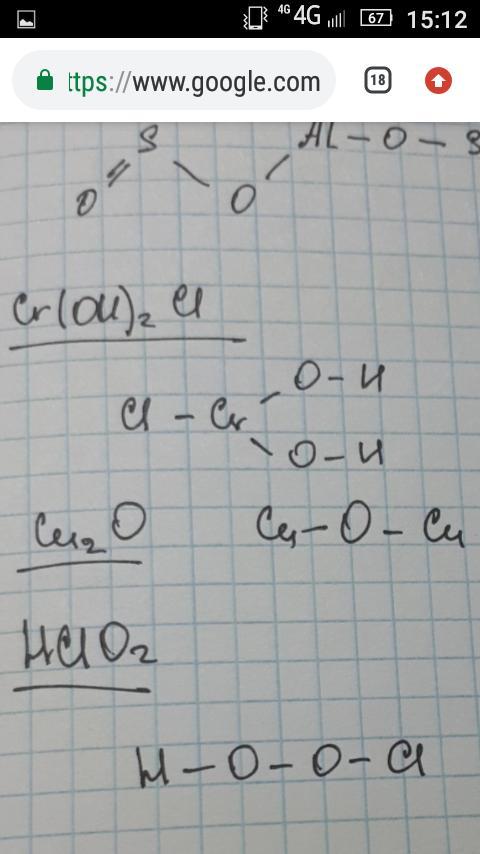 4G 4G 67 15:12
ttps://www.google.com 18
S Al - O - S
O = S - O
Cr(OH)₂Cl
O - H
Cl - Cr
O - H
Cu₂O Cu - O - Cu
HClO₂
H - O - O - Cl